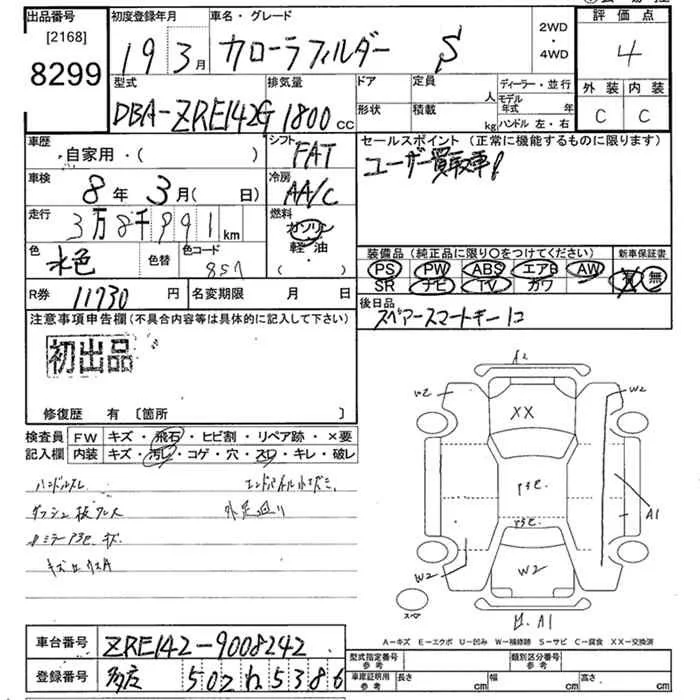 出品番号
[2168]
8299
初度登録年月
19 3月
車名・グレード
カローラフィルダー S
2WD
・
4WD
評価点
4
外装 内装
C C
型式
DBA-ZRE142G
排気量
1800cc
ドア
形状
定員
人
積載
kg
ディーラー・並行
モデル
年式 年
ハンドル 左・右
車歴
自家用・( )
車検
8年 3月( 日)
走行
3万8千991km
色
水色
色替
色コード
8S7
シフト
FAT
冷房
AA/C
燃料
ガソリン
軽・油
( ・ )
セールスポイント (正常に機能するものに限ります)
ユーザー買取車!
装備品(純正品に限り○をつけてください)
PS PW ABS エアB AW
SR ナビ TV カワ
新車保証書
有 無
R券 11730円
名変期限 月 日
後日品
スペアースマートキー1コ
注意事項申告欄(不具合内容等は具体的に記入して下さい)
初出品
修復歴 有〔箇所 〕
検査員
記入欄
FW キズ・飛石・ヒビ割・リペア跡・×要
内装 キズ・汚レ・コゲ・穴・スレ・キレ・破レ
ハンドルスレ
エンドパネル小キズミ
外足廻り
A2
W2
W2
XX
P3e.
P3e.
A1
W2
W2
スペア
A1
A-キズ E-エクボ U-凹み W-補修跡 S-サビ C-腐食 XX-交換済
車台番号 ZRE142-9008242
登録番号 507 5386
型式指定番号
参考
類別区分番号
参考
車庫証明用
参考
長さ cm
幅 cm
高さ cm